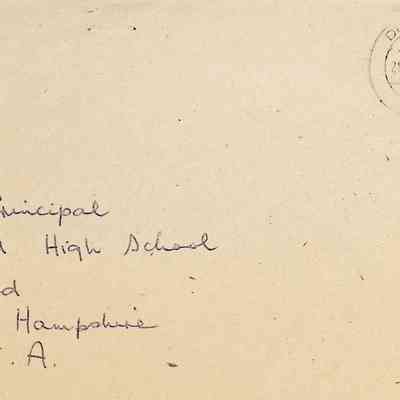 rincipal
High School
d
Hampshire
. A.